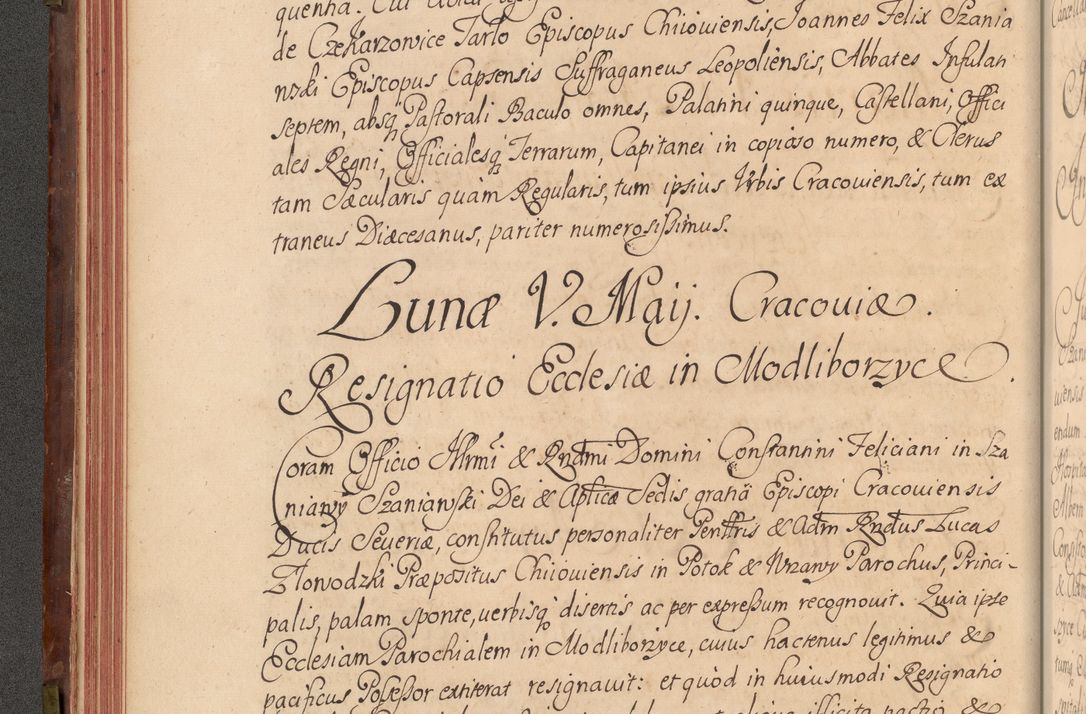 de Czekarzowice Tarlo Episcopus Chiiouiensis, Joannes Felix Szania
nski Episcopus Capsensis Suffraganeus Leopoliensis, Abbates Infulati
septem, absq Pastorali Baculo omnes, Palatini quinque, Castellani, Offici
ales Regni, Officialesq Terrarum, Capitanei in copioso numero, & Clerus
tam Sæcularis quàm Regularis, tum ipsius Urbis Cracouiensis, tum ex
traneus Diæcesanus, pariter numerosissimus.
Lunæ V. Maij. Cracouiæ.
Resignatio Ecclesiæ in Modliborzyce.
Coram Officio Illrmi & Rndmi Domini Constantini Feliciani in Sza
niawy Szaniawski Dei & Aplicæ Sedis gratiâ Episcopi Cracouiensis
Ducis Seueriæ, constitutus personaliter Penttris & Adm Rndus Lucas
Złowodzki Præpositus Chiiouiensis in Potok & Wrzawy Parochus, Princi-
palis, palam, sponte, uerbisq disertis ac per expressum recognouit. Quia ipse
Ecclesiam Parochialem in Modliborzyce, cuius hactenus legitimus &
pacificus Possessor extiterat resignauit: et quòd in huiusmodi Resignatio